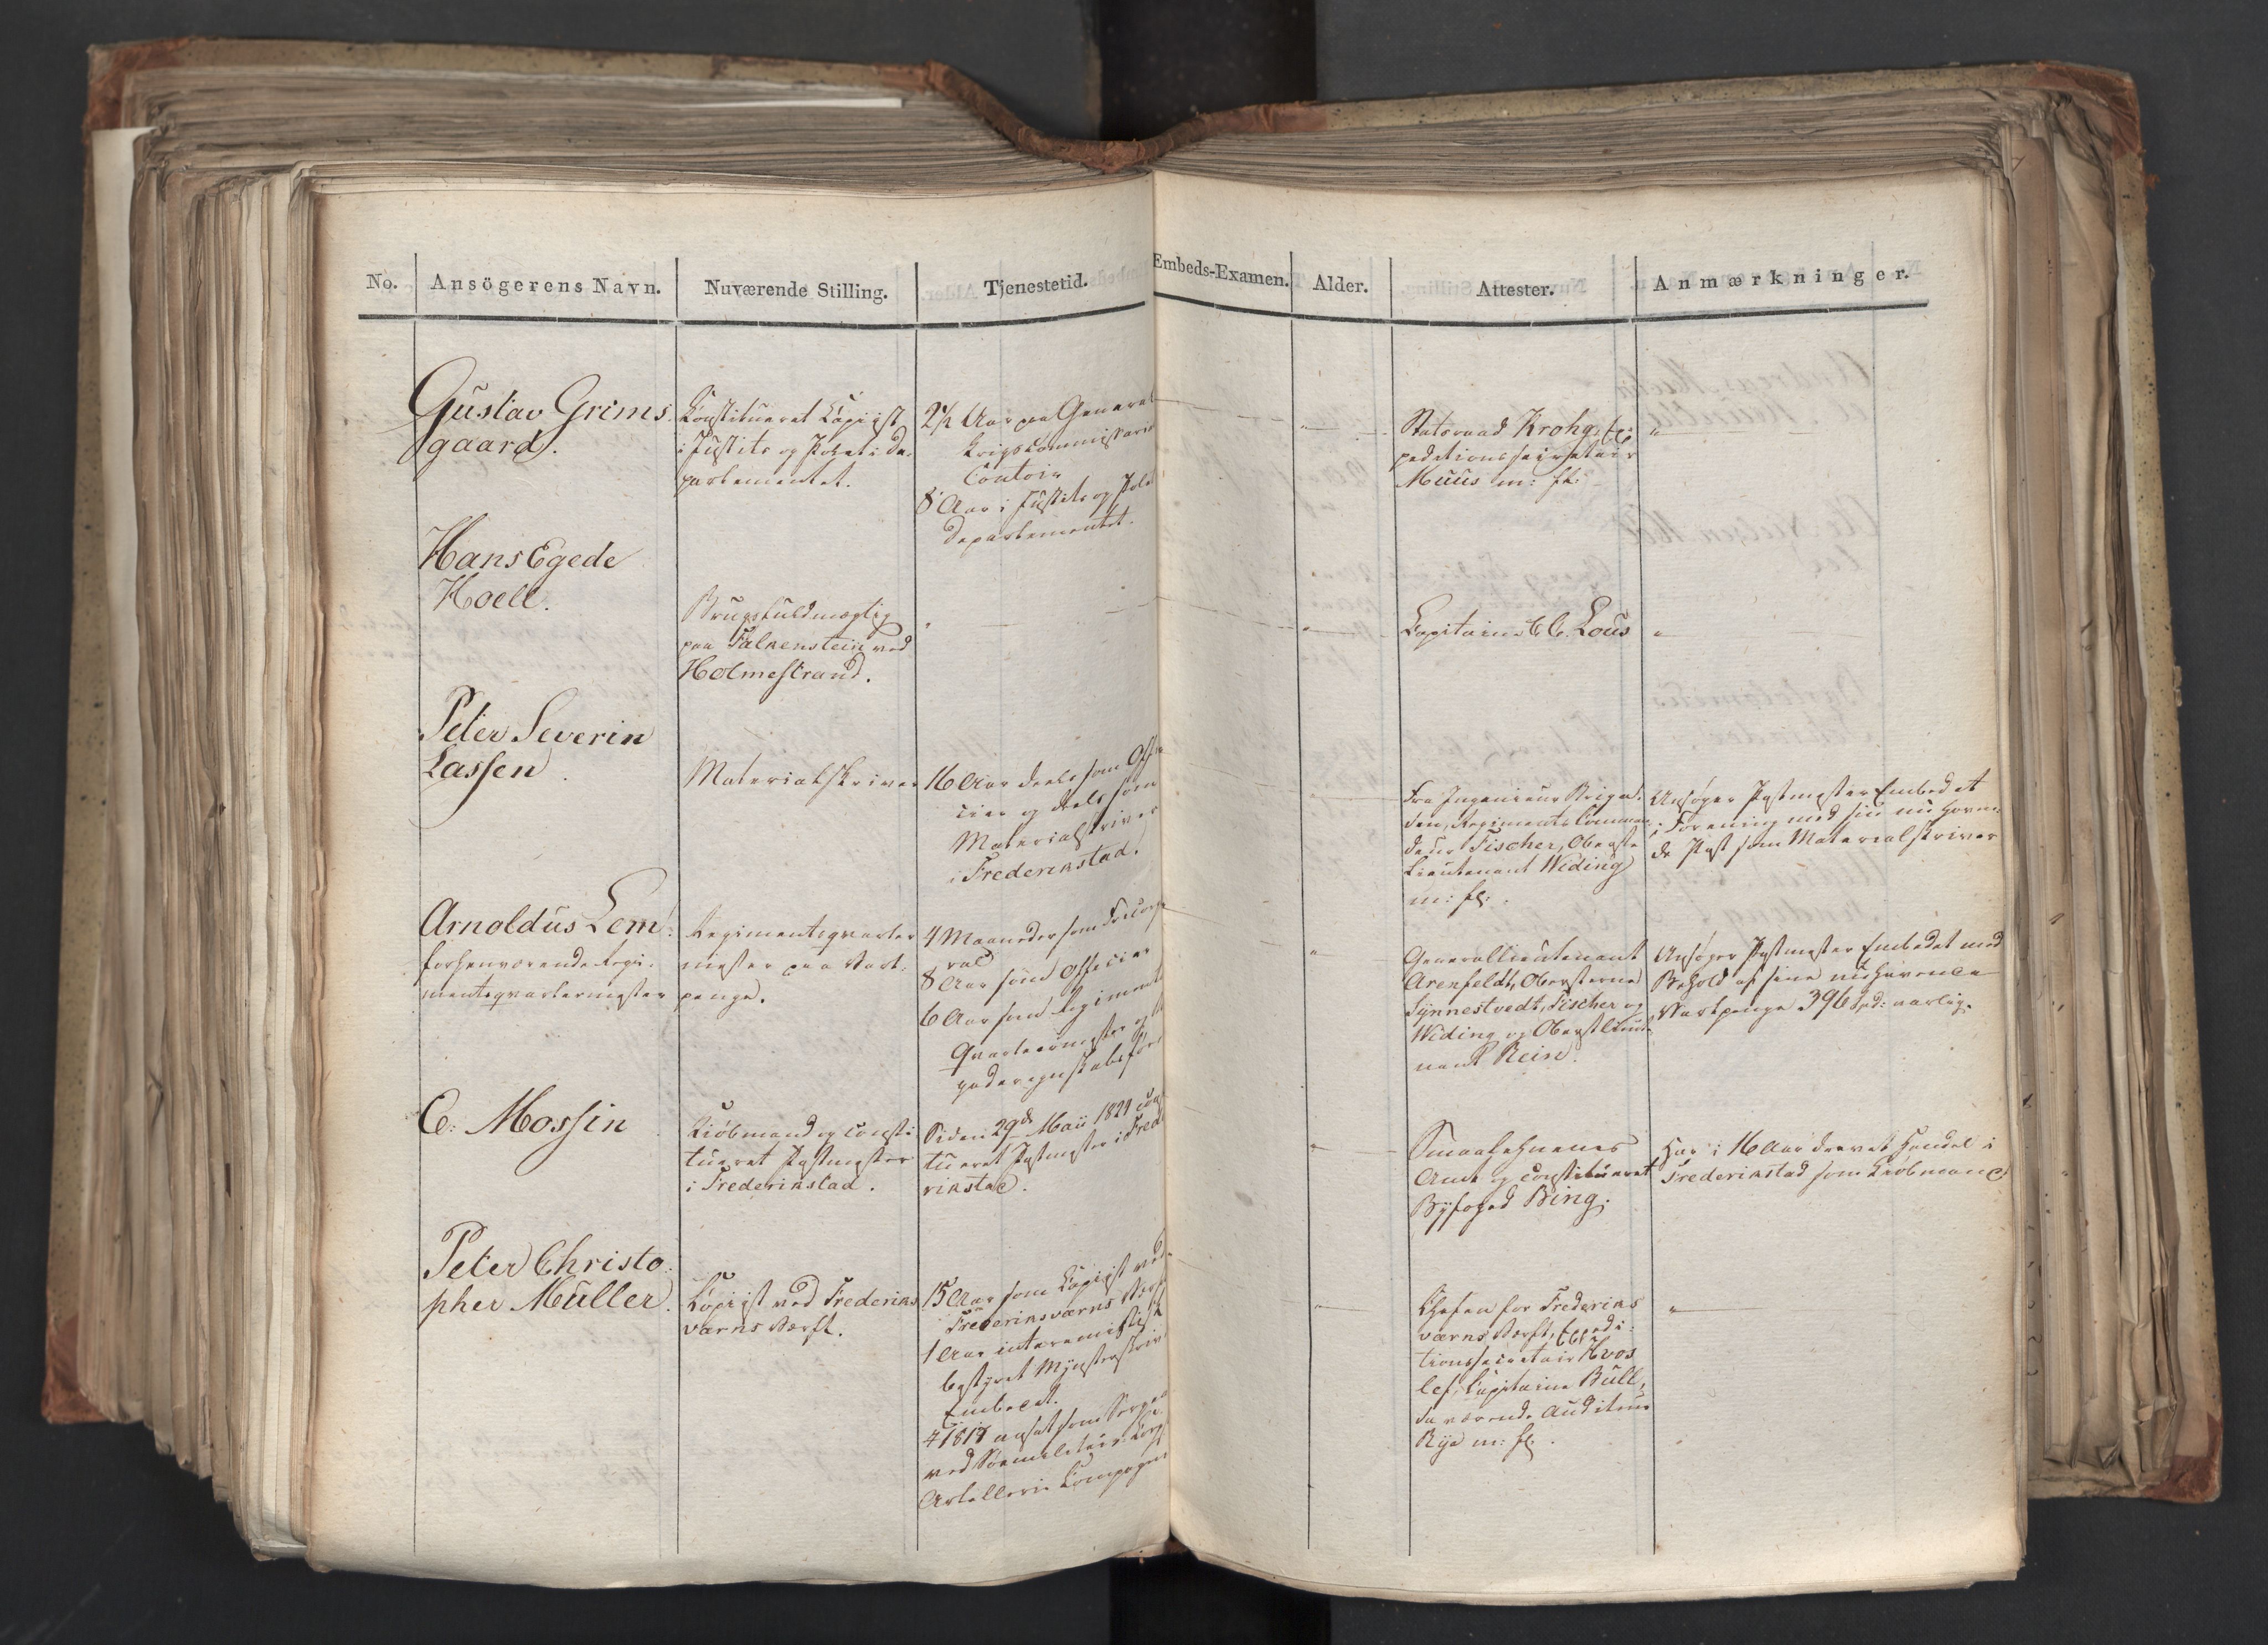 No. Ansögerens Navn. Nuværende Stilling. Tjenestetid. Embeds-Examen. Alder. Attester. Anmærkninger.
Gustav Grims-
gaard.
Constitueret Copiist
i Justits og Politi De-
partementet.
2½ Aar paa General
Krigscommissariat
Contoir
8 Aar i Justits og Poli
Departementet.
Statsraad Krohg, Ex-
peditionssecretair
Muus m: fl:
Hans Egede
Hoell.
Brugsfuldmægtig
paa Falkenstein ved
Holmestrand.
Capitaine C. Lous
Peter Severin
Lassen.
Materialskriver
16 Aar deels som Offi
cier og deels som
Materialskriver
i Frederikstad.
Fra Ingenieur Briga-
den, Regiments Comman-
deur Fischer, Oberste
Lieutenant Weding
m: fl:
Ansøger Postmester Embedet
i Forening med sin nu haven-
de Post som Materialskriver
Arnoldus Lem
forhenværende Regi-
mentsqvartermester
Regimentsqvarter
mester paa Vart-
penge.
4 Maaneder som
8 Aar som Officier
6 Aar som Regiments
Qvarteermester og
Generallieutenant
Arenfeldt, Obersterne
Synnestvedt, Fischer og
Weding og Oberstlieute
nant Rein.
Ansøger Postmester Embedet med
Behold af sine nu havende
Vartpenge 396 Spd: aarlig.
C: Mossin
Kiöbmand og consti-
tueret Postmester
i Frederikstad.
Siden 29de Maii 1821 cons
tueret Postmester i Fred
rikstad.
Smaalehnenes
Amt og constitueret
Byfoged Bing.
Har i 16 Aar drevet Handel i
Frederikstad som Kiöbmand
Peter Christo-
pher Müller.
Copiist ved Frederiks
værns Værft.
15 Aar som Copiist ved
Frederiksværns Værft
1 Aar interimistisk
bestyret Mynsterskriv
Embedet.
1817 ansat som Serge
ved Sømilitair Corps
Artillerie Compagni
Chefen for Frederiks
værns Værft, Expedi-
tionssecretair Hvos
lef, Capitaine Bull,
da værende Auditeur
Rye m: fl: